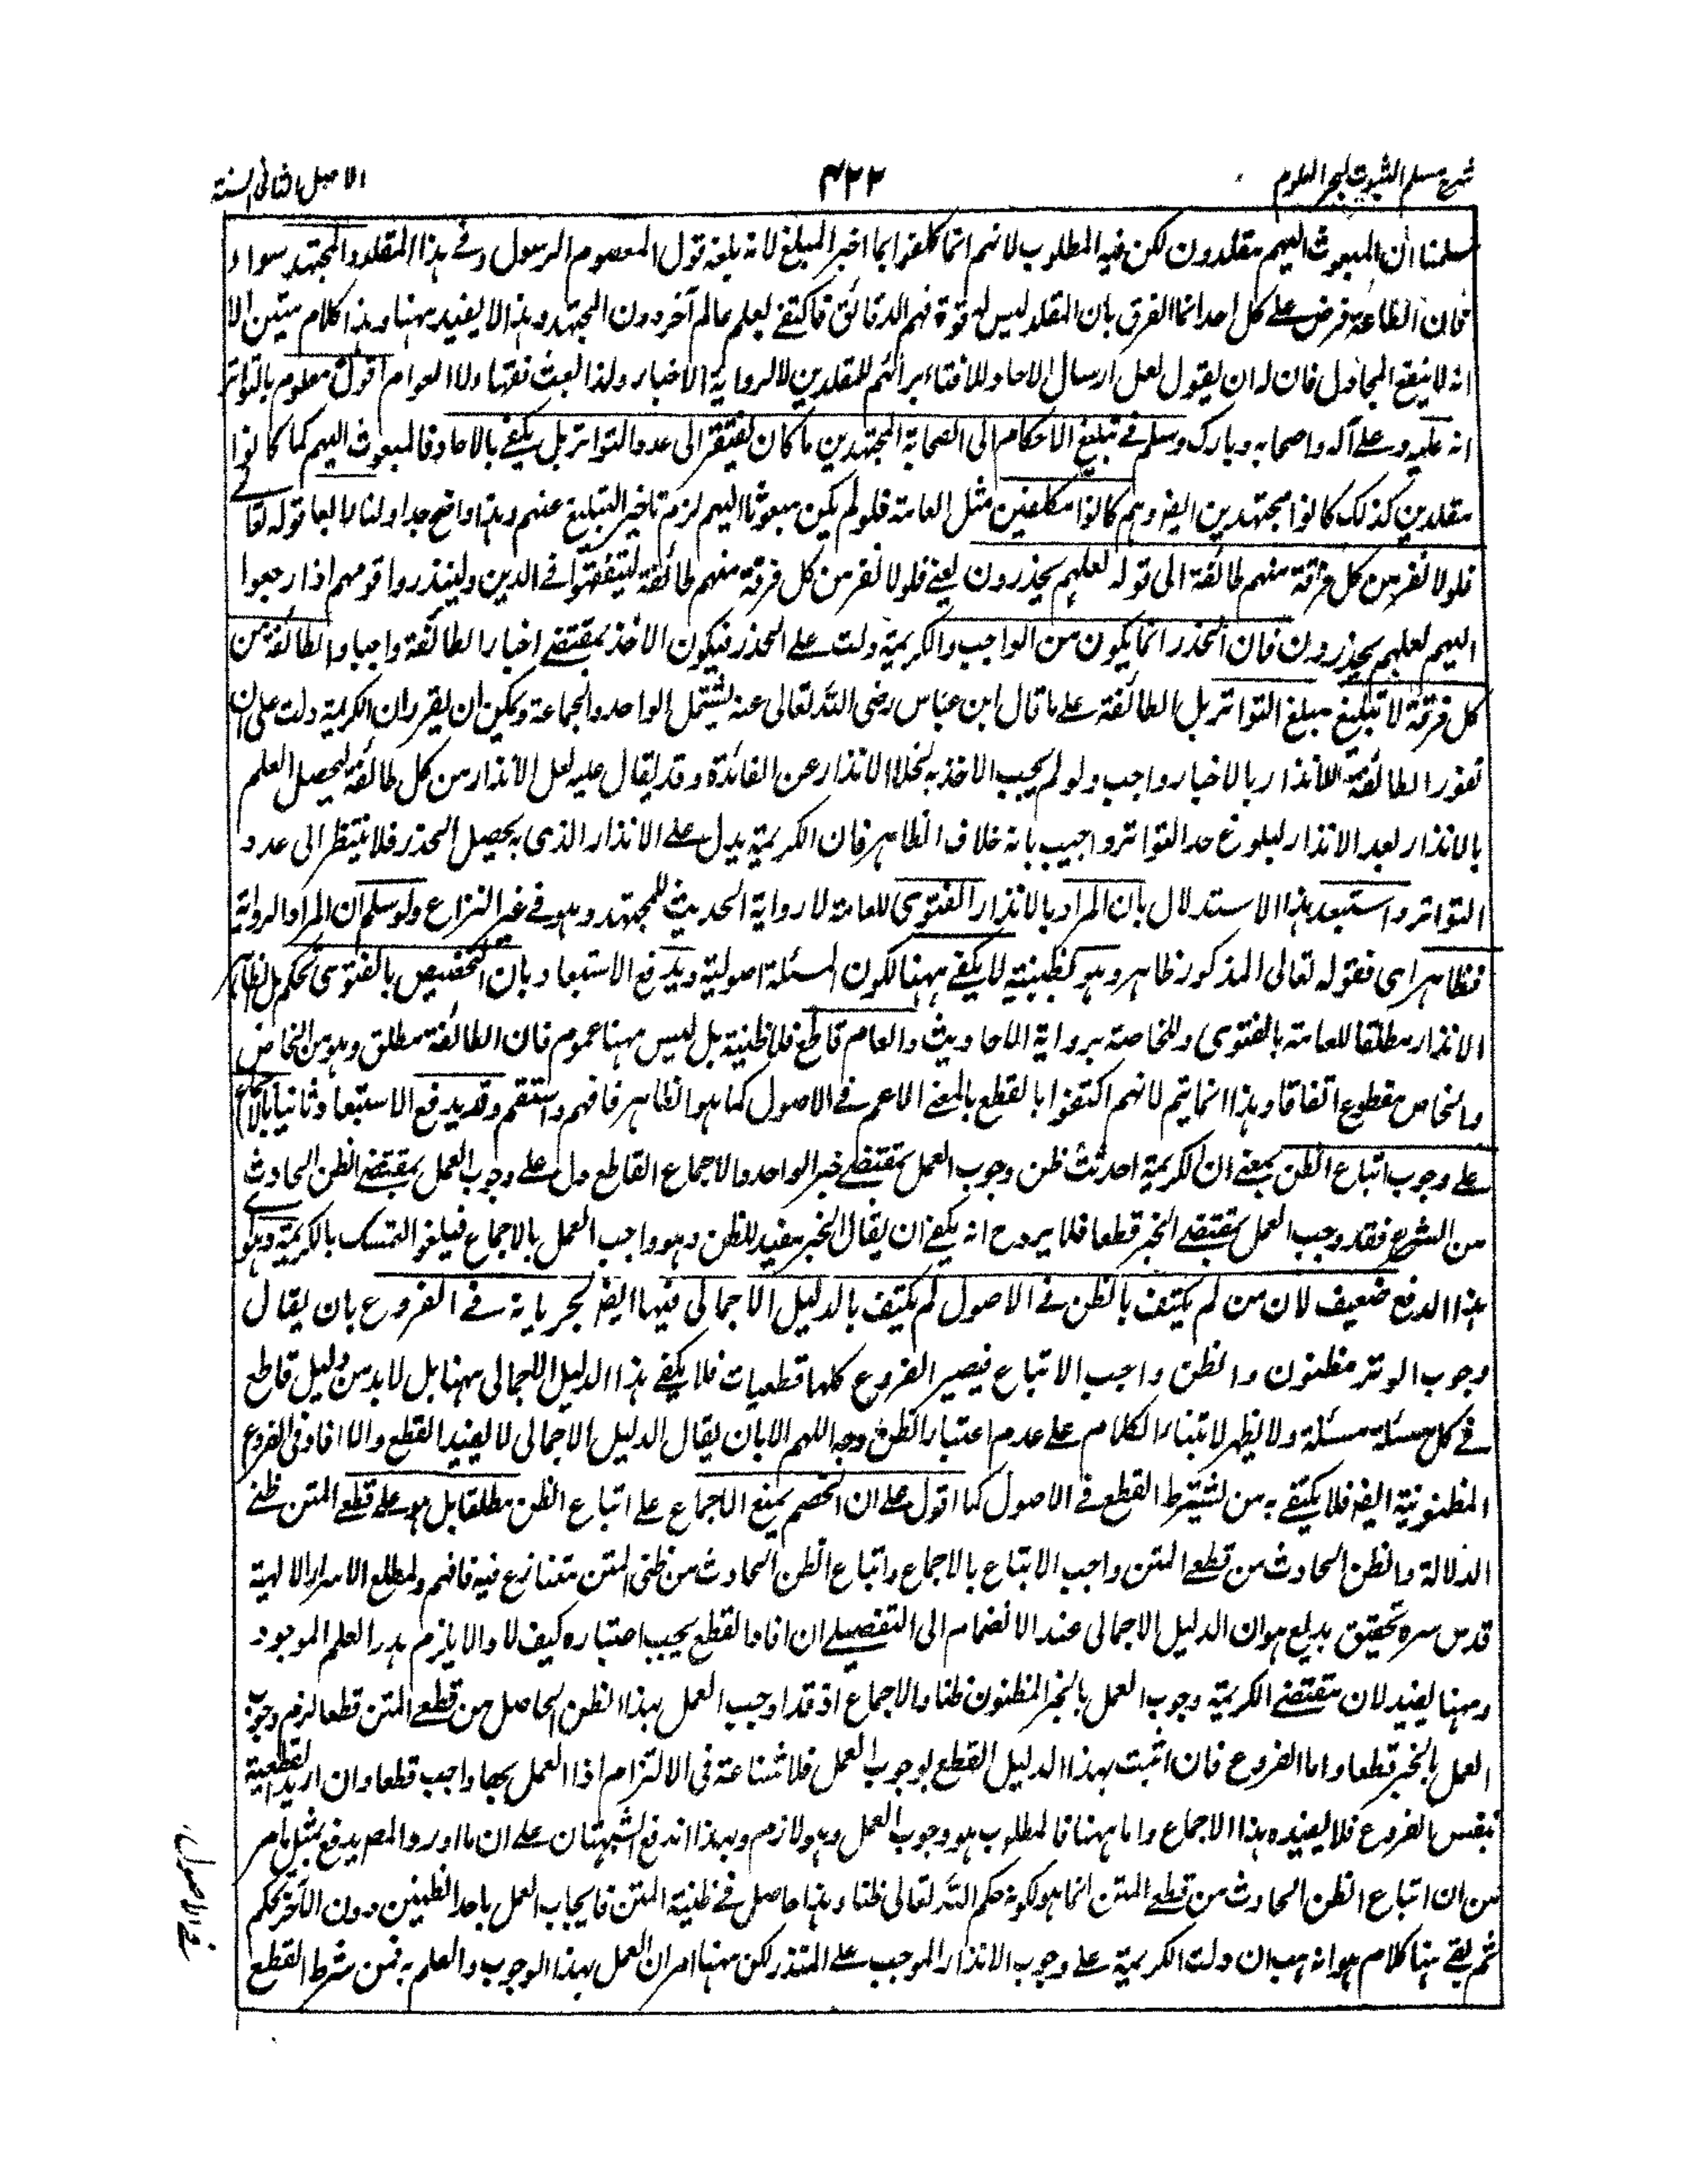 شرح مسلم الثبوت لبحر العلوم
٤٢٢
الاصل الثانى السنة
سلمنا ان المبعوث اليهم مقلدون لكن فيه المطلوب لانهم انما كلفوا بما اخبر المبلغ لانه بلغه قول المعصوم الرسول وفے هذا المقلد والمجتهد سواء
فان الطاعة فرض علے كل احد انما الفرق بان المقلد ليس له قوة فهم الدقائق فاكتفے بعلم عالم آخر دون المجتهد وهذا لا يفيد ههنا وهذا كلام متين الا
انه لا ينفع المجادل فان له ان يقول لعل ارسال الاحاد للافتاء برائهم للمقلدين لا لرواية الاخبار ولذا البعث فقها ولا العوام اقول معلوم بالتواتر
انه عليه وعلے آله واصحابه وبارك وسلم فے تبليغ الاحكام الى الصحابة المجتهدين ما كان يفتقر الى عدد التواتر بل يكفے بالاحاد فالمبعوث اليهم كما كانوا
مقلدين كذلك كانوا مجتهدين ايضا وهم كانوا مكلفين مثل العامة فلو لم يكن مبعوثا اليهم لزم تاخير التبليغ عنهم وهذا واضح جدا ولنا رابعا قوله تعالے
فلولا نفر من كل فرقة منهم طائفة الى قوله لعلهم يحذرون يعنے فلولا نفر من كل فرقة منهم طائفة ليتفقهوا فے الدين ولينذروا قومهم اذا رجعوا
اليهم لعلهم يحذرون فان الحذر انما يكون من الواجب والكريمة دلت علے الحذر فيكون الاخذ بمقتضے اخبار الطائفة واجبا والطائفة من
كل فرقة لا تبليغ مبلغ التواتر بل الطائفة علے ما قال ابن عباس رضى الله تعالى عنه يشتمل الواحد والجماعة ويمكن ان يقرر ان الكريمة دلت على ان
نفور الطائفة للانذار بالاخبار واجب ولو لم يجب الاخذ به لخلا الانذار عن الفائدة وقد يقال عليه لعل الانذار من كل طائفة ليحصل العلم
بالانذار بعد الانذار لبلوغ حد التواتر واجيب بانه خلاف الظاهر فان الكريمة يدل علے الانذار الذى به يحصل الحذر فلا ينتظر الى عدد
التواتر واستبعد هذا الاستدلال بان المراد بالانذار الفتوى للعامة لا رواية الحديث للمجتهد وهو فے غير النزاع ولو سلم ان المراد الرواية
فظاهر اى فقوله تعالى المذكور ظاهر وهو لظنيته لا يكفے ههنا لكون المسئلة اصولية ويدفع الاستبعاد بان التخصيص بالفتوى تحكم بل الظاهر
الانذار مطلقا للعامة بالفتوى وللخاصة برواية الاحاديث والعام قاطع فلا ظنية بل ليس ههنا عموم فان الطائفة مطلق وهو من الخاص
والخاص مقطوع اتفاقا وهذا انما يتم لانهم اكتفوا بالقطع بالمعنے الاعم فے الاصول كما هو الظاهر فافهم واستقم وقد يدفع الاستبعاد ثانيا بالاجماع
علے وجوب اتباع الظن بمعنے ان الكريمة احدثت ظن وجوب العمل بمقتضے خبر الواحد والاجماع القاطع دل علے وجوب العمل بمقتضے الظن الحادث
من الشرع فقد وجب العمل بمقتضے الخبر قطعا فلا يروح انه يكفے ان يقال الخبر مفيد للظن وهو واجب العمل بالاجماع فيلغو التمسك بالكريمة وهو اے
هذا الدفع ضعيف لان من لم يكتف بالظن فے الاصول لم يكتف بالدليل الاجمالى فيها ايضا لجريانه فے الفروع بان يقال
وجوب الوتر مظنون والظن واجب الاتباع فيصير الفروع كلها قطعيات فلا يكفے هذا الدليل الاجمالى ههنا بل لا بد من دليل قاطع
فے كل مسئلة مسئلة ولا يظهر لابتناء الكلام علے عدم اعتبار الظن وجه اللهم الا بان يقال الدليل الاجمالى لا يفيد القطع والا افاد فى الفروع
المظنونية ايضا فلا يكتفے به من يشترط القطع فے الاصول كما اقول علے ان الخصم يمنع الاجماع علے اتباع الظن مطلقا بل هو علے قطعے المتن ظنے
الدلالة والظن الحادث من قطعے المتن واجب الاتباع بالاجماع واتباع الظن الحادث من ظنى المتن متنازع فيه فافهم ولمطلع الاسرار الالهية
قدس سره تحقيق بديع هو ان الدليل الاجمالى عند الانضمام الى التفصيلے ان افاد القطع يجب اعتباره كيف لا والا يلزم هدر العلم الموجود
وههنا يفيد لان مقتضے الكريمة وجوب العمل بالخبر المظنون ظنا والاجماع اذ قد اوجب العمل بهذا الظن الحاصل من قطعے المتن قطعا لزم وجوب
العمل بالخبر قطعا واما الفروع فان اثبت بهذا الدليل القطع بوجوب العمل فلا شناعة فى الالتزام اذا العمل بها واجب قطعا وان اريد القطعية
بنفس الفروع فلا يفيده هذا الاجماع واما ههنا فالمطلوب هو وجوب العمل وهو لازم وبهذا اندفع الشبهتان علے ان ما اورد المصر يدفع بمثل ما مر
من ان اتباع الظن الحادث من قطعے المتن انما هو لكونه حكم الله تعالى ظنا وهذا حاصل فے ظنية المتن فايجاب العمل باحد الظنين دون الآخر تحكم
ثم بقے ههنا كلام هو انه هب ان دلت الكريمة علے وجوب الانذار الموجب علے المنذر لكن ههنا امران العمل بهذا الوجوب والعلم به فمن شرط القطع
فے الاصول